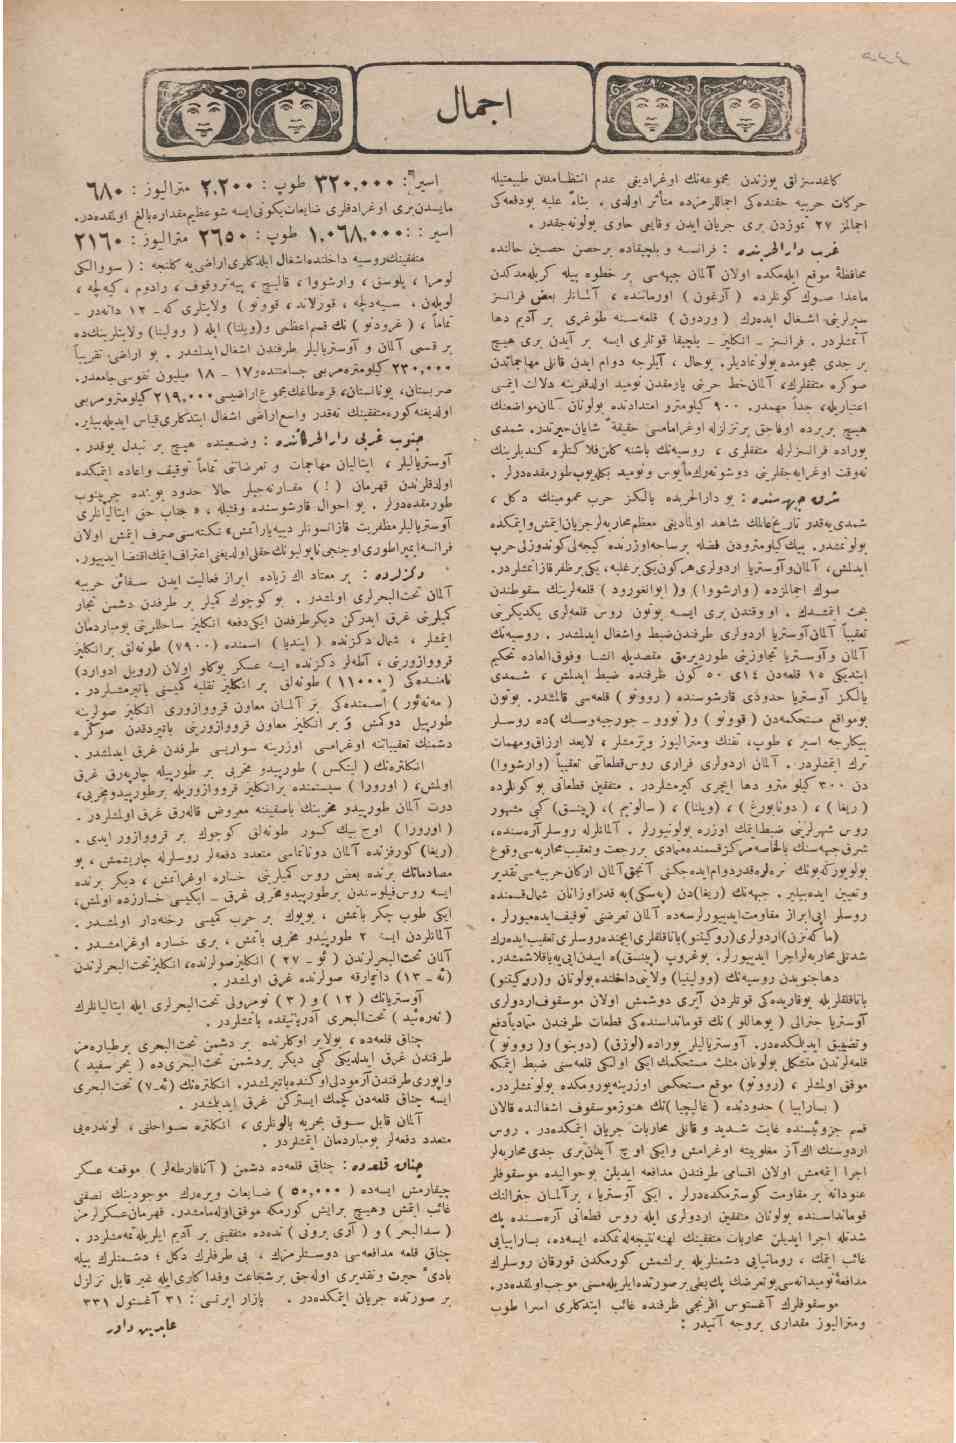 اجمال
كاغدسزلق يوزندن مجموعه‌نك اوغراديغى عدم انتظامدن طبيعتيله
حركات حربيه حقنده‌كى اجماللرمزده متأثر اولدى . بناءً عليه بودفعه‌كى
اجمالمز ٢٧ تموزدن برى جريان ايدن وقايعى حاوى بولونه‌جقدر .
غرب دارالحربنده : فرانسه و بلچيقاده برحصن حصين حالنده
محافظهٔ موقع ايله‌مكده اولان آلمان جبهه‌سى بر خطوه بيله كريله‌مه‌دكدن
ماعدا صوك كونلرده ( آرغون ) اورماننده ، آلمانلر بعض فرانسز
سپرلرينى اشغال ايده‌رك ( وردون ) قلعه‌سنه طوغرى بر آديم دها
آتمشلردر . فرانسز - انكليز - بلچيقا قوتلرى ايسه بر آيدن برى هيچ
بر جدى هجومده بولونماديلر . بوحال ، آيلرجه دوام ايدن قانلى مهاجماتدن
صوكره متفقلرك، آلمان خط حربنى يارمقدن نوميد اولدقلرينه دلالت ايتمسى
اعتباريله، جداً مهمدر . ٩٠٠ كيلومترو امتدادنده بولونان آلمان مواضعنك
هيچ بر يرده اوفاجق بر تزلزله اوغرامامسى حقيقةً شايان حيرتدر. شمدى
بوراده فرانسزلرله متفقلرى ، روسيه‌نك باشنه كلن فلاكتلره كنديلرينك
نه‌وقت اوغرايه‌جقلرينى دوشونه‌رك مأيوس ونوميد بكله‌يوب طورمقده‌درلر .
شرق جبهه‌سنده : بو دارالحربده يالكز حرب عمومينك دكل ،
شمدى‌يه‌قدر تاريخ عالمك شاهد اولماديغى معظم محاربه‌لر جريان ايتمش وايتمكده
بولونمشدر. بيك كيلومترودن فضله بر ساحه اوزرنده كيجه‌لى كوندوزلى حرب
ايدلمش، آلمان و آوستريا اردولرى هركون يكى بر غلبه، يكى بر ظفر قازانمشلردر.
صوك اجمالمزده ( وارشووا ) و( ايوانغورود ) قلعه‌لرينك سقوطندن
بحث ايتمشدك . او وقتدن برى ايسه بوتون روس قلعه‌لرى يكديكرينى
تعقيباً آلمان آوستريا اردولرى طرفندن ضبط واشغال ايدلمشدر . روسيه‌نك
آلمان و آوستريا تجاوزينى طورديرمق مقصديله انشا وفوق‌العاده تحكيم
ايتديكى ١٥ قلعه‌دن ١٤ى ٥٠ كون ظرفنده ضبط ايدلمش ، شمدى
يالكز آوستريا حدودى قارشوسنده ( روونو ) قلعه‌سى قالمشدر. بوتون
بومواقع مستحكمه‌دن ( قوونو ) و( نووو - جورجيه‌وسك )ده روسلر
بيكلرجه اسير ، طوپ، تفنك ومتراليوز ويرمشلر ، لايعد ارزاق ومهمات
ترك ايتمشلردر . آلمان اردولرى فرارى روس قطعاتى تعقيباً (وارشووا)
دن ٣٠٠ كيلومترو دها ايچرى كيرمشلردر . متفقين قطعاتى بو كونلرده
( ريغا ) ، ( دونابورغ ) ، ( ويلنا ) ، ( سالونيم )، (پينسق) كبى مشهور
روس شهرلرينى ضبط ايتمك اوزره بولونيورلر . آلمانلرله روسلر آره‌سنده،
شرق جبهه‌سنك بالخاصه مركز قسمنده متمادى بر رجعت وتعقيب محاربه‌سى وقوع
بولويوركه بونك نره‌لره‌قدر دوام ايده‌جكنى آنجق آلمان اركان حربيه‌سى تقدير
وتعيين ايده‌بيلير . جبهه‌نك (ريغا)دن (پسكى)يه قدر اوزانان شمال قسمنده
روسلر اپى ابراز مقاومت ايدييورلرسه‌ده آلمان تعرضنى توقيف ايده‌ميورلر .
( ماكه‌نزن )اردولرى (روكيتنو) باتاقلقلرى ايچنده روسلرى تعقيب ايده‌رك
شدتلى محاربه‌لر اجرا ايدييورلر. بوغروپ (پينسق)ه اپيدن اپى‌يه ياقلاشمشدر.
دها جنوبدن روسيه‌نك (ووالينيا) ولايتى داخلنده بولونان و(روكيتنو)
باتاقلقلريله يوقاريده‌كى قوتلردن آيرى دوشمش اولان موسقوف اردولرى
آوستريا جنرالى ( بوهاللو )نك قومانداسنده‌كى قطعات طرفندن متمادياً دفع
وتضييق ايديلمكده‌در. آوستريالير بوراده (لوزق) (دوبنو) و( روونو )
قلعه‌لرندن متشكل بولونان مثلث مستحكمك ايكى اولكى قلعه‌سنى ضبط ايتمكه
موفق اولمشلر ، (روونو) موقع مستحكمى اوزرينه يورومكده بولونمشلردر.
( بسارابيا ) حدودنده ( غاليچيا )نك هنوز موسقوف اشغالنده قالان
قسم جزوئيسنده غايت شديد و قانلى محاربات جريان ايتمكده‌در . روس
اردوسنك اك آز مغلوبيته اوغرامش وايكى اوچ آيدن‌برى جدى محاربه‌لر
اجرا ايتمه‌مش اولان اقسامى طرفندن مدافعه ايديلن بوحواليده موسقوفلر
عنودانه بر مقاومت كوسترمكده‌درلر . ايكى آوستريا ، بر آلمان جنرالنك
قومانداسنده بولونان متفقين اردولرى ايله روس قطعاتى آره‌سنده پك
شدتله اجرا ايديلن محاربات متفقينك لهنه نتيجه‌لنمكده ايسه‌ده، بسارابيايى
غائب ايتمك ، رومانيايى دشمنلريله برلشمش كورمكدن قورقان روسلرك
مدافعهٔ نوميدانه‌سى بوتعرضك پك بطى بر صورتده ايلريله‌مسنى موجب اولمقده‌در.
موسقوفلرك آغستوس افرنجى ظرفنده غائب ايتدكلرى اسرا طوپ
ومتراليوز مقدارى بروجه آتيدر :
اسير : ٣٢٠,٠٠٠ طوپ : ٢,٢٠٠ متراليوز : ٦٨٠
مايسدن برى اوغرادقلرى ضايعات يكونى ايسه شو عظيم مقداره بالغ اولمقده‌در.
اسير : ١,٠٦٨,٠٠٠ طوپ : ٢٦٥٠ متراليوز : ٢١٦٠
متفقينك روسيه داخلنده اشغال ايلدكلرى اراضى‌يه كلنجه : ( سووالكى
لومزا ، پلوسق ، وارشووا ، قاليچ ، پيه‌تروقوف ، رادوم ، كيه‌لچه ،
لوبلن ، سيه‌دلچه ، قورلاند ، قوونو ) ولايتلرى كه - ١٢ دانه‌در -
تماماً ، ( غرودنو ) نك قسم اعظمى و(ويلنا) ايله ( وولينا) ولايتلرينك‌ده
بر قسمى آلمان و آوستريالير طرفندن اشغال ايدلمشدر . بو اراضى تقريباً
٢٣٠,٠٠٠ كيلومتره مربعى جسامتنده ١٧ - ١٨ ميليون نفوسى جامعدر.
صربستان، يونانستان، قره‌طاغك مجموع اراضيسى ٢١٩,٠٠٠ كيلومترو مربعى
اولديغنه كوره متفقينك نه‌قدر واسع اراضى اشغال ايتدكلرى قياس ايديله‌بيلير.
جنوب غربى دارالحركاتنده : وضعيتده هيچ بر تبدل يوقدر .
آوستريالير ، ايتاليان مهاجمات و تعرضاتنى تماماً توقيف واعاده ايتمكده
اولدقلرندن قهرمان ( ! ) مقارنه‌جيلر حالا حدود بوينده چيرپنوب
طورمقده‌درلر . بو احوال قارشوسنده وقتيله ، « جناب حق ايتاليانلرى
آوستريالير مظفريت قازانسونلر دييه ياراتمش» نكته‌سنى صرف ايتمش اولان
فرانسه ايمپراطورى اوچنجى ناپوليونك حقلى اولديغنى اعتراف ايتمك اقتضا ايدييور.
دكزلرده : بر معتاد اك زياده ابراز فعاليت ايدن سفائن حربيه
آلمان تحت‌البحرلرى اولمشدر . بو كوچوك كميلر بر طرفدن دشمن تجار
كميلرينى غرق ايدركن ديكر طرفدن ايكى دفعه انكليز ساحللرينى بومباردمان
ايتمشلر ، شمال دكزنده ( اينديا ) اسمنده (٧٩٠٠) طونه‌لق بر انكليز
قرووازورينى ، آطه‌لر دكزنده ايسه عسكر يوكلو اولان (رويل ادوارد)
نامنده‌كى ( ١١٠٠٠ ) طونه‌لق بر انكليز نقليه كميسنى باتيرمشلردر .
( مه‌ته‌ئور ) اسمنده‌كى بر آلمان معاون قرووازورى انكليز صولرينه
طورپيل دوكمش و بر انكليز معاون قرووازورينى باتيردقدن صوكره
دشمنك تعقيباتنه اوغرامسى اوزرينه سواريسى طرفندن غرق ايدلمشدر .
انكلتره‌نك ( لينكس ) طورپيدو مخربى بر طورپيله چارپه‌رق غرق
اولمش، ( اورورا ) سيستمنده بر انكليز قرووازوريله بر طورپيدو مخربى،
درت آلمان طورپيدو مخربنك باصقيننه معروض قاله‌رق غرق اولمشلردر .
( اورورا ) اوچ بيك كسور طونه‌لق كوچوك بر قرووازور ايدى .
(ريغا) كورفزنده آلمان دونانماسى متعدد دفعه‌لر روسلرله چارپشمش ، بو
مصادماتك برنده بعض روس كميلرينى خساره اوغراتمش ، ديكر برنده
ايسه روس فيلوسندن بر طورپيدو مخربى غرق - ايكيسى خسارزده اولمش،
ايكى طوپ چكر باتمش ، بويوك بر حرب كميسى رخنه‌دار اولمشدر .
آلمانلردن ايسه ٢ طورپيدو مخربى باتمش ، برى خساره اوغرامشدر .
آلمان تحت‌البحرلرندن ( ئو - ٢٧ ) انكليز صولرنده، انكليز تحت‌البحرلرندن
(ئه - ١٣) دانيمارقه صولرنده غرق اولمشدر .
آوستريانك ( ١٢ ) و ( ٣ ) نومرولى تحت‌البحرلرى ايله ايتاليانلرك
( نه‌ره‌ئيد ) تحت‌البحرى آدرياتيقده باتمشلردر .
چناق قلعه‌ده ، بولاير اوكلرنده بر دشمن تحت‌البحرى برطياره‌مز
طرفندن غرق ايدلديكى كبى ديكر بر دشمن تحت‌البحرى‌ده ( بحر سفيد )
واپورى طرفندن آزمودلى اوكنده باتيرلمشدر. انكلتره‌نك (ئه-٧) تحت‌البحرى
ايسه چناق قلعه‌دن كچمك ايستركن غرق ايدلمشدر .
آلمان قابل سوق بحريه بالونلرى ، انكلتره سواحلنى ، لوندره‌يى
متعدد دفعه‌لر بومباردمان ايتمشلردر .
چناق قلعه‌ده : چناق قلعه‌ده دشمن ( آنافارطه‌لر ) موقعنه عسكر
چيقارمش ايسه‌ده ( ٥٠,٠٠٠ ) ضايعات ويره‌رك موجودينك نصفنى
غائب ايتمش وهيچ بر ايش كورمكه موفق اوله‌مامشدر. قهرمان عسكرلرمز
( سدالبحر ) و ( آرى برونى ) نده‌ده متفقينى بر آديم ايلريلتمه‌مشلردر .
چناق قلعه مدافعه‌سى دوستلرمزك ، بى طرفلرك دكل ؛ دشمنلرك بيله
بادىء حيرت وتقديرى اوله‌جق بر شجاعت وفداكارى ايله غير قابل تزلزل
بر صورتده جريان ايتمكده‌در . بازار ايرتسى : ٣١ آغستوس ٣٣١
عابدين داور